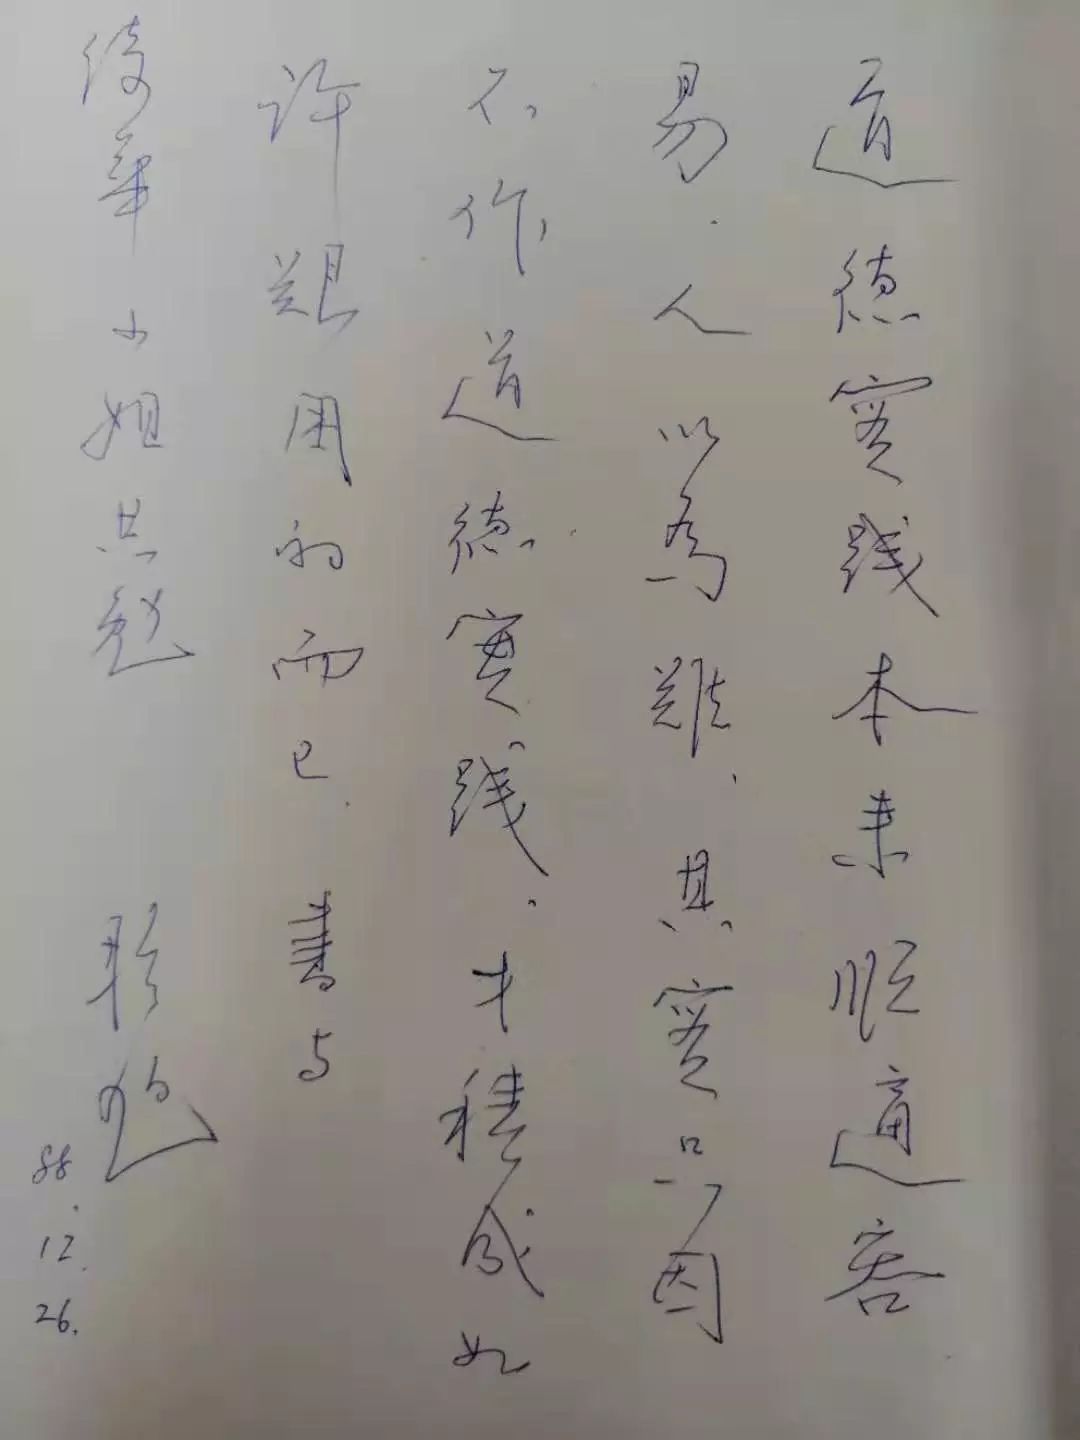 道德實践本来順適容
易.人以為難.其實只因
不作道德實践.才積成如
許艱困的而已.書与
绮華小姐共勉
88.12.26.